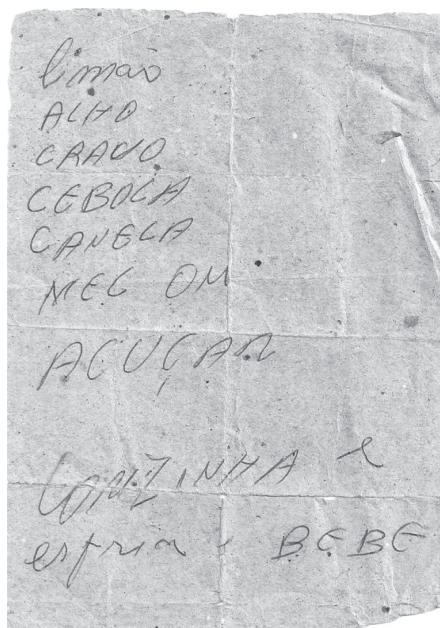 limão
ALHO
CRAVO
CEBOLA
CANELA
MEL OU
AÇUÇAR
COMZINHA e
esfria. BEBE